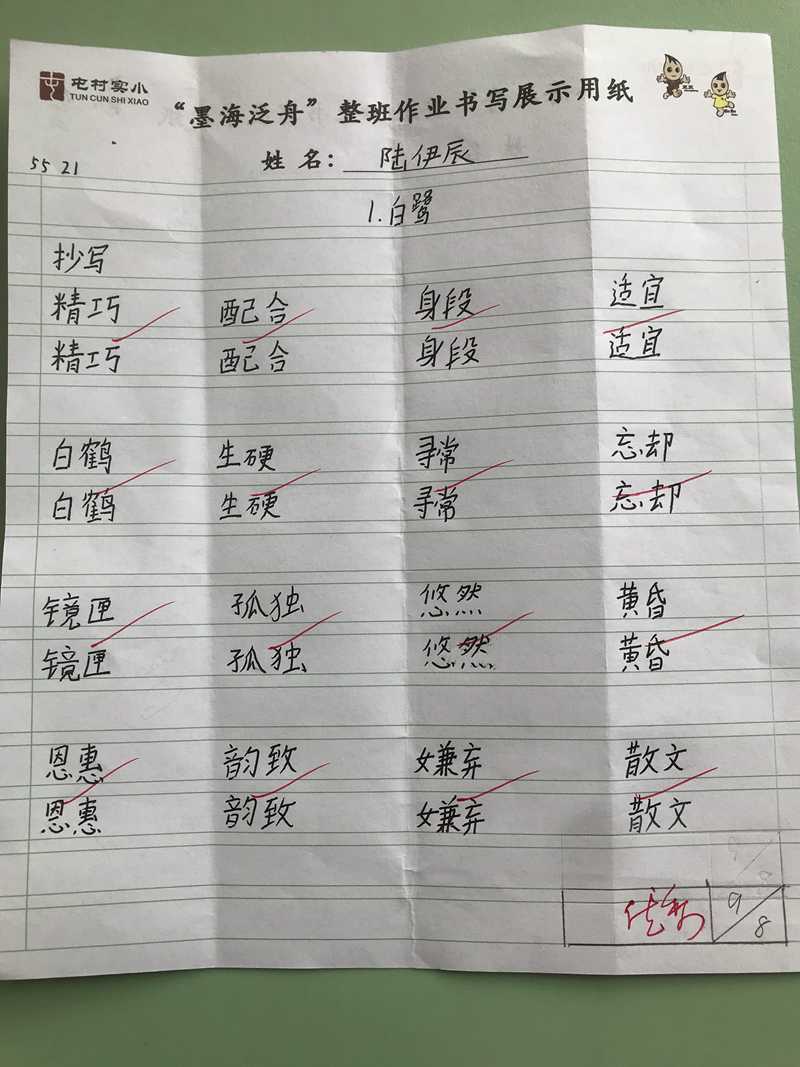 屯村实小
TUN CUN SHI XIAO
“墨海泛舟”整班作业书写展示用纸
姓名：陆伊辰
55 21
1.白鹭
抄写
精巧 配合 身段 适宜
精巧 配合 身段 适宜
白鹤 生硬 寻常 忘却
白鹤 生硬 寻常 忘却
镜匣 孤独 悠然 黄昏
镜匣 孤独 悠然 黄昏
恩惠 韵致 嫌弃 散文
恩惠 韵致 嫌弃 散文
优秀 9/8